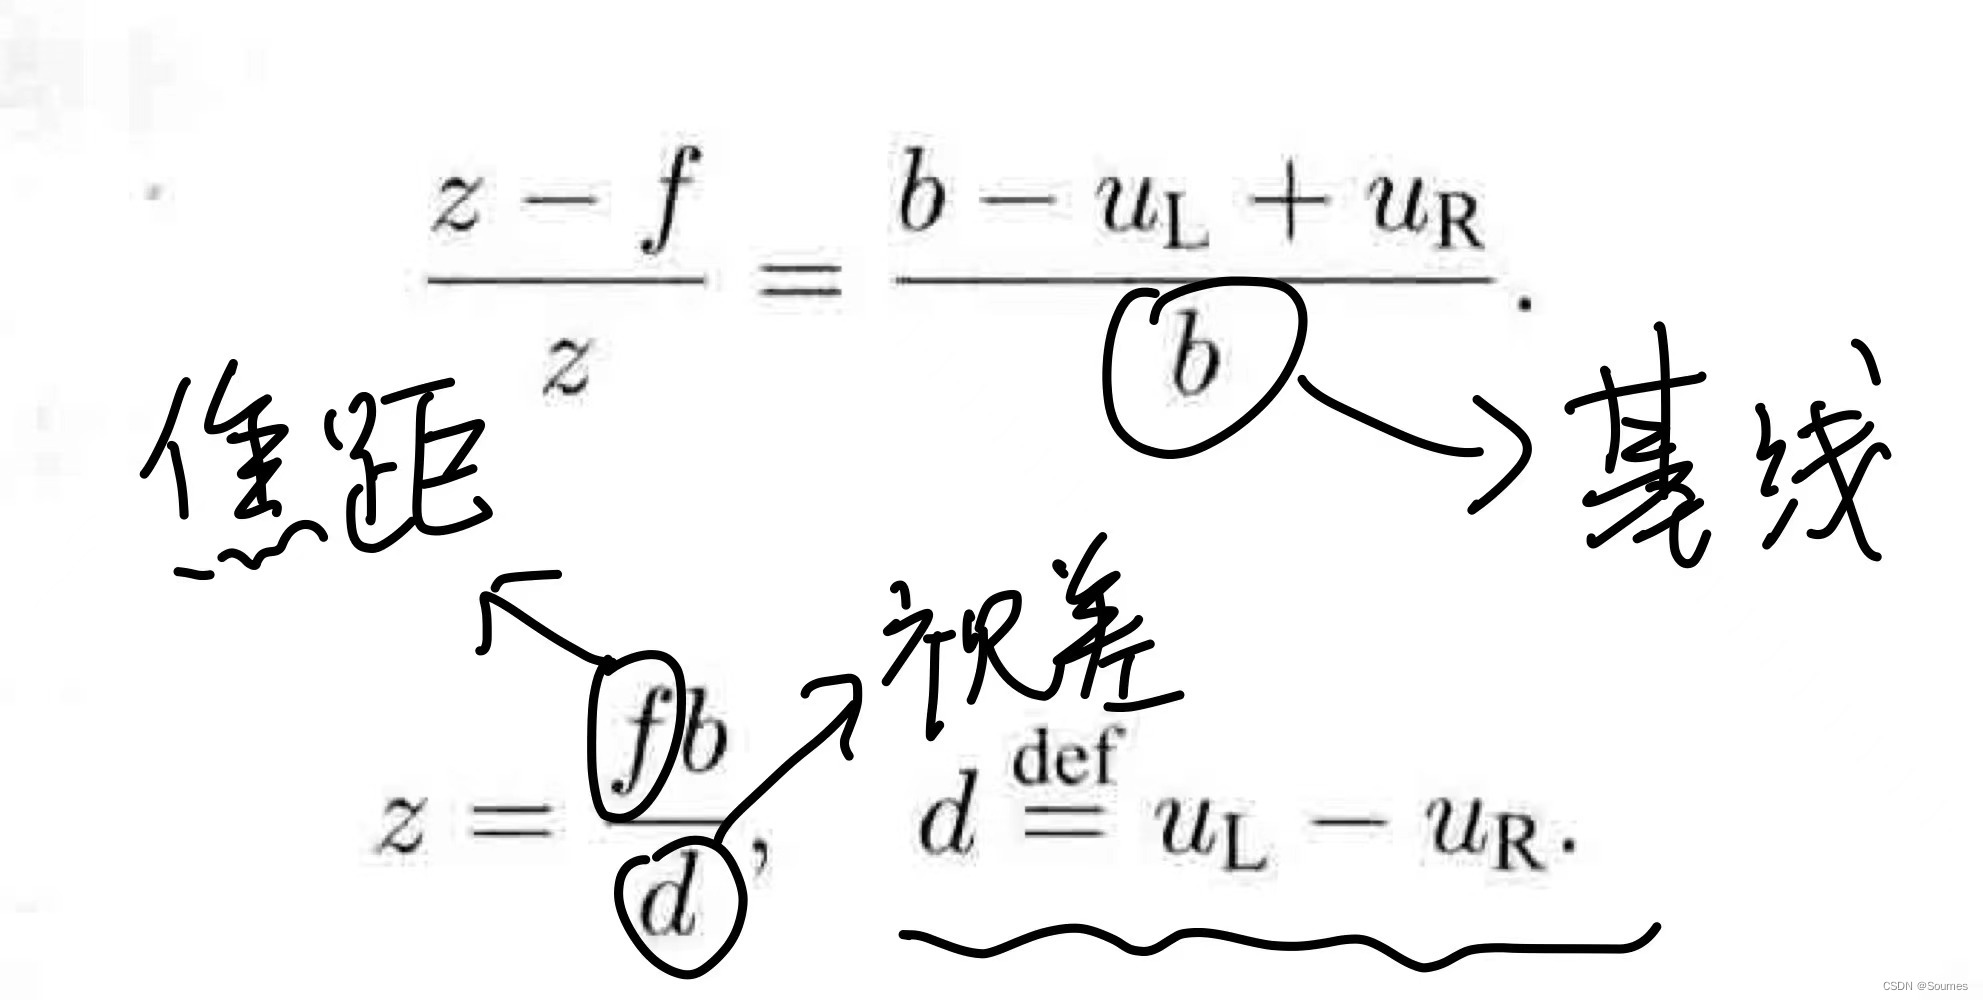 (z − f) / z = (b − u_L + u_R) / b .
焦距
基线
视差
z = fb / d , d ≝ u_L − u_R.
CSDN @Soumes